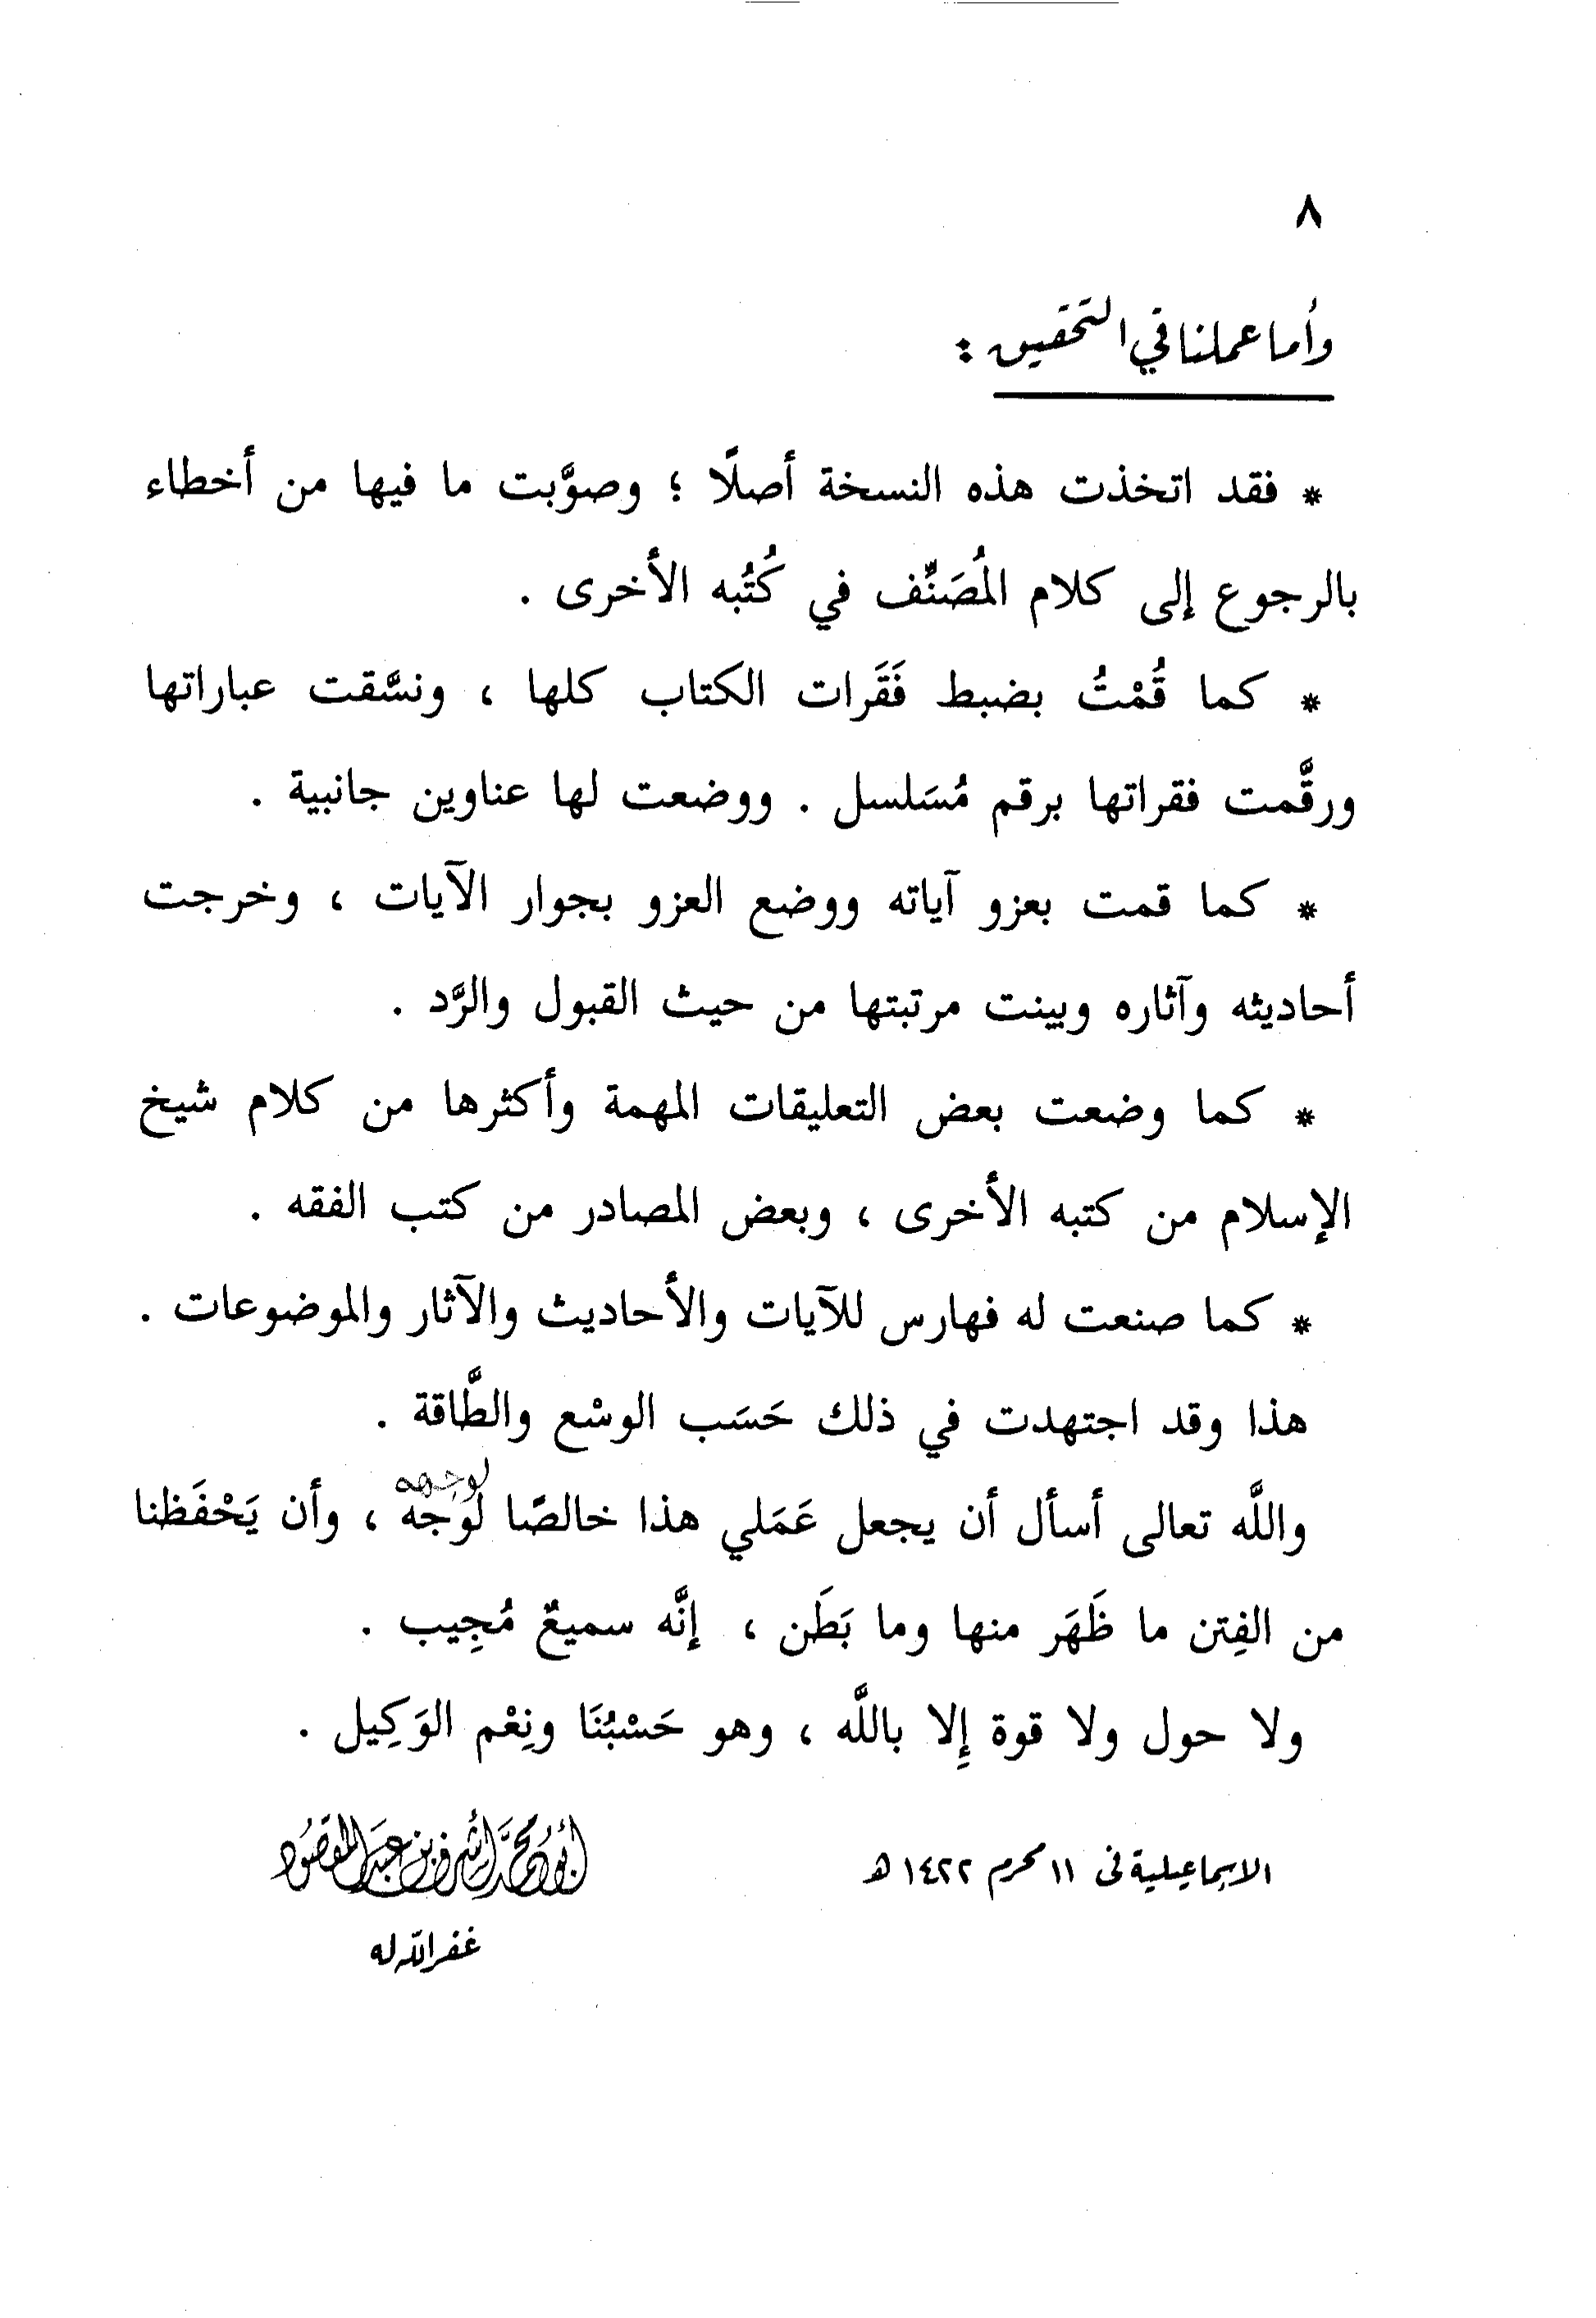 ٨
وأما عملنا في التحقيق :
* فقد اتخذت هذه النسخة أصلًا ؛ وصوَّبت ما فيها من أخطاء
بالرجوع إلى كلام المُصَنِّف في كُتُبه الأخرى .
* كما قُمْتُ بضبط فَقَرات الكتاب كلها ، ونسَّقت عباراتها
ورقَّمت فقراتها برقم مُسَلسل . ووضعت لها عناوين جانبية .
* كما قمت بعزو آياته ووضع العزو بجوار الآيات ، وخرجت
أحاديثه وآثاره وبينت مرتبتها من حيث القبول والرَّد .
* كما وضعت بعض التعليقات المهمة وأكثرها من كلام شيخ
الإسلام من كتبه الأخرى ، وبعض المصادر من كتب الفقه .
* كما صنعت له فهارس للآيات والأحاديث والآثار والموضوعات .
هذا وقد اجتهدت في ذلك حَسَب الوسْع والطَّاقة .
لوجهه
واللَّه تعالى أسأل أن يجعل عَمَلي هذا خالصًا لوجه ، وأن يَحْفَظنا
من الفِتن ما ظَهَر منها وما بَطَن ، إنَّه سميعٌ مُجِيب .
ولا حول ولا قوة إِلا باللَّه ، وهو حَسْبُنَا ونِعْم الوَكِيل .
الاسماعيلية في ١١ محرم ١٤٢٢ هـ
أبو محمد أشرف بن عبد المقصود
غفر الله له